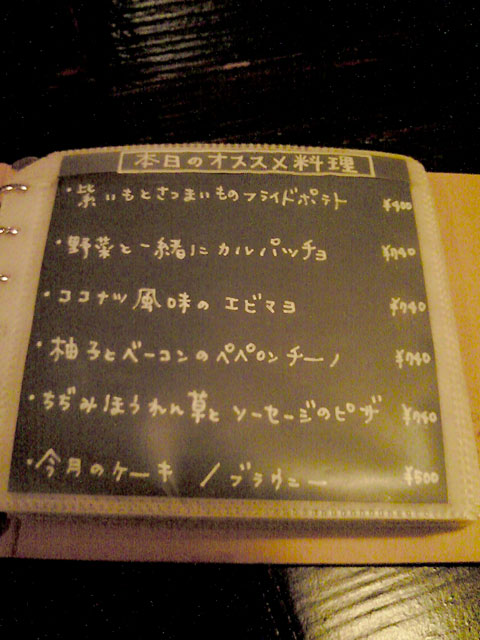 本日のオススメ料理
・紫いもとさつまいものフライドポテト ¥400
・野菜と一緒にカルパッチョ ¥740
・ココナツ風味のエビマヨ ¥740
・柚子とベーコンのペペロンチーノ ¥740
・ちぢみほうれん草とソーセージのピザ ¥740
・今月のケーキ /ブラウニー ¥500